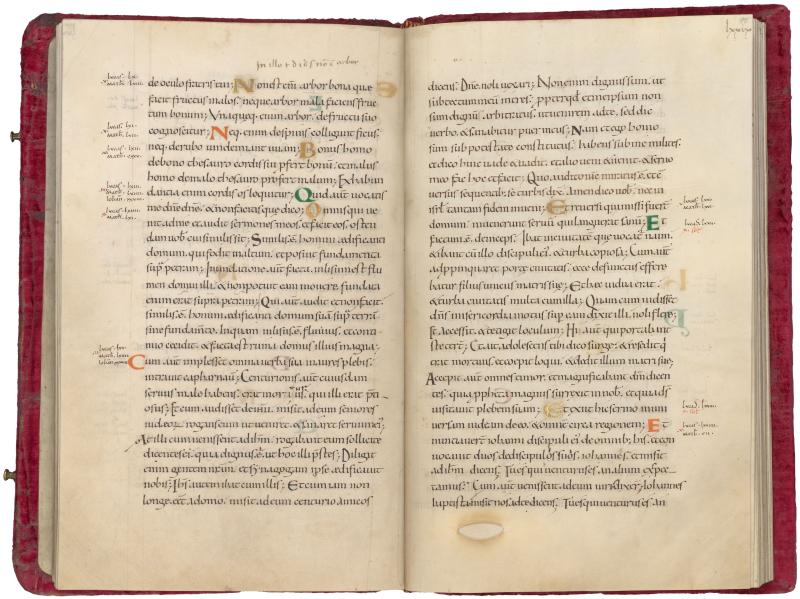 de oculo fratris tui; Non est eni arbor bona quae
facit fructus malos. neque arbor mala faciens fruc
tum bonum; Unaqueq; enim arbor. de fructu suo
cognoscitur; Neq; enim de spinis colligunt ficus.
neq; de rubo vindemiant uvam; Bonus homo
de bono thesauro cordis sui pfert bonum. et malus
homo de malo thesauro profert malum; Ex habun
dantia enim cordis os loquitur; Quid aut vocatis
me dne dne. & non facitis que dico; Omnis qui ve
nit ad me et audit sermones meos. et facit eos. osten
dam vob cui similis sit; Similis e homini aedificanti
domum. qui fodit in altum. et posuit fundamenta
sup petram; Inundatione aut facta. inlisum est flu
men domui illi. & non potuit eam movere. fundata
enim erat supra petram; Qui aut audit et non facit.
similis e homini aedificanti domum suam sup terra
sine fundamto. In quam inlisus e fluvius. et conti
nuo cecidit. & facta est ruina domus illius magna;
Cum aut implesset omnia verba sua in aures plebis.
intravit capharnaum; Centurionis aut cuiusdam
servus male habens. erat moriturus. qui illi erat pti
osus; Et cum audisset de ihu. misit ad eum seniores
iudeor. rogans eum ut veniret & salvaret servum ei;
At illi cum venissent ad ihm. rogabant eum sollicite
dicentes ei. quia dignus e. ut hoc illi pstes; Diligit
enim gentem nram. et synagogam ipse aedificavit
nobis; Ihs autem ibat cum illis; Et cum iam non
longe eet a domo. misit ad eum centurio amicos
dicens; Dne noli vexari; Non enim dignus sum. ut
sub tectum meu intres; ppter qd et me ipsum non
sum dignu arbitratus. ut venirem ad te. sed dic
verbo. & sanabitur puer meus; Nam et ego homo
sum sub potestate constitutus. habens sub me milites.
et dico huic vade & vadit. et alio veni & venit. & servo
meo fac hoc et facit; Quo audito ihs miratus e. et c
versus sequentib; se turbis dix; Amen dico vob. nec in
isrl tantam fidem inveni; Et reversi qui missi fuert
domum. invenerunt servu qui languerat sanu; Et
factum e deinceps. Ibat in civitate que vocat naim.
& ibant cu illo discipuli ei. & turba copiosa; Cum aut
adppinquaret porte civitatis. ecce defunctus effere
batur filius unicus matris sue; Et haec vidua erat.
& turba civitatis multa cum illa; Quam cum vidisset
dns. misericordia motus sup eam dixit illi. noli flere;
Et accessit. & tetigit loculum; Hi aut qui portabant
stetert; Et ait. adolescens tibi dico surge; & resedit q
erat mortuus. et coepit loqui. & dedit illum matri sue;
Accepit aut omnes timor. et magnificabant dm dicen
tes. quia ppheta magnus surrexit in nob. et quia ds
visitavit plebem suam; Et exiit hic sermo in uni
versam iudeam de eo. & omne circa regionem; Et
nuntiavert iohanni discipuli ei de omnib; his. et con
vocavit duos de discipulos suos. iohannes. et misit
ad ihm dicens; Tu es qui venturus es. an alium expec
tamus; Cum aut venissent ad eum viri dixer; Iohannes
baptista misit nos ad te dicens. Tu es qui venturus es. an